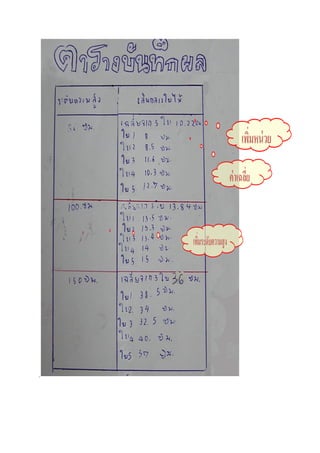 ตารางบันทึกผล
ระดับความสูง
เส้นรอบวงใบไม้
50 ซม
เฉลี่ยจาก 5 ใบ 10.22 ซม
ใบ 1 8 ซม
ใบ 2 8.5 ซม
ใบ 3 11.6 ซม
ใบ 4 10.3 ซม
ใบ 5 12.7 ซม
100 ซม
13.84 ซม
ใบ 1 13.5 ซม
ใบ 2 ซม
ใบ 3 ซม
ใบ 4 14 ซม
ใบ 5 15 ซม
150 ซม.
เฉลี่ยจาก 5 ใบ 36 ซม.
ใบ 1 38.5 ซม.
ใบ 2. 34 ซม.
ใบ 3 32.5 ซม.
ใบ 4 40. ซม.
ใบ 5 ซม.
เพิ่มหน่วย
ค่าเฉลี่ย
เพิ่มระดับความสูง